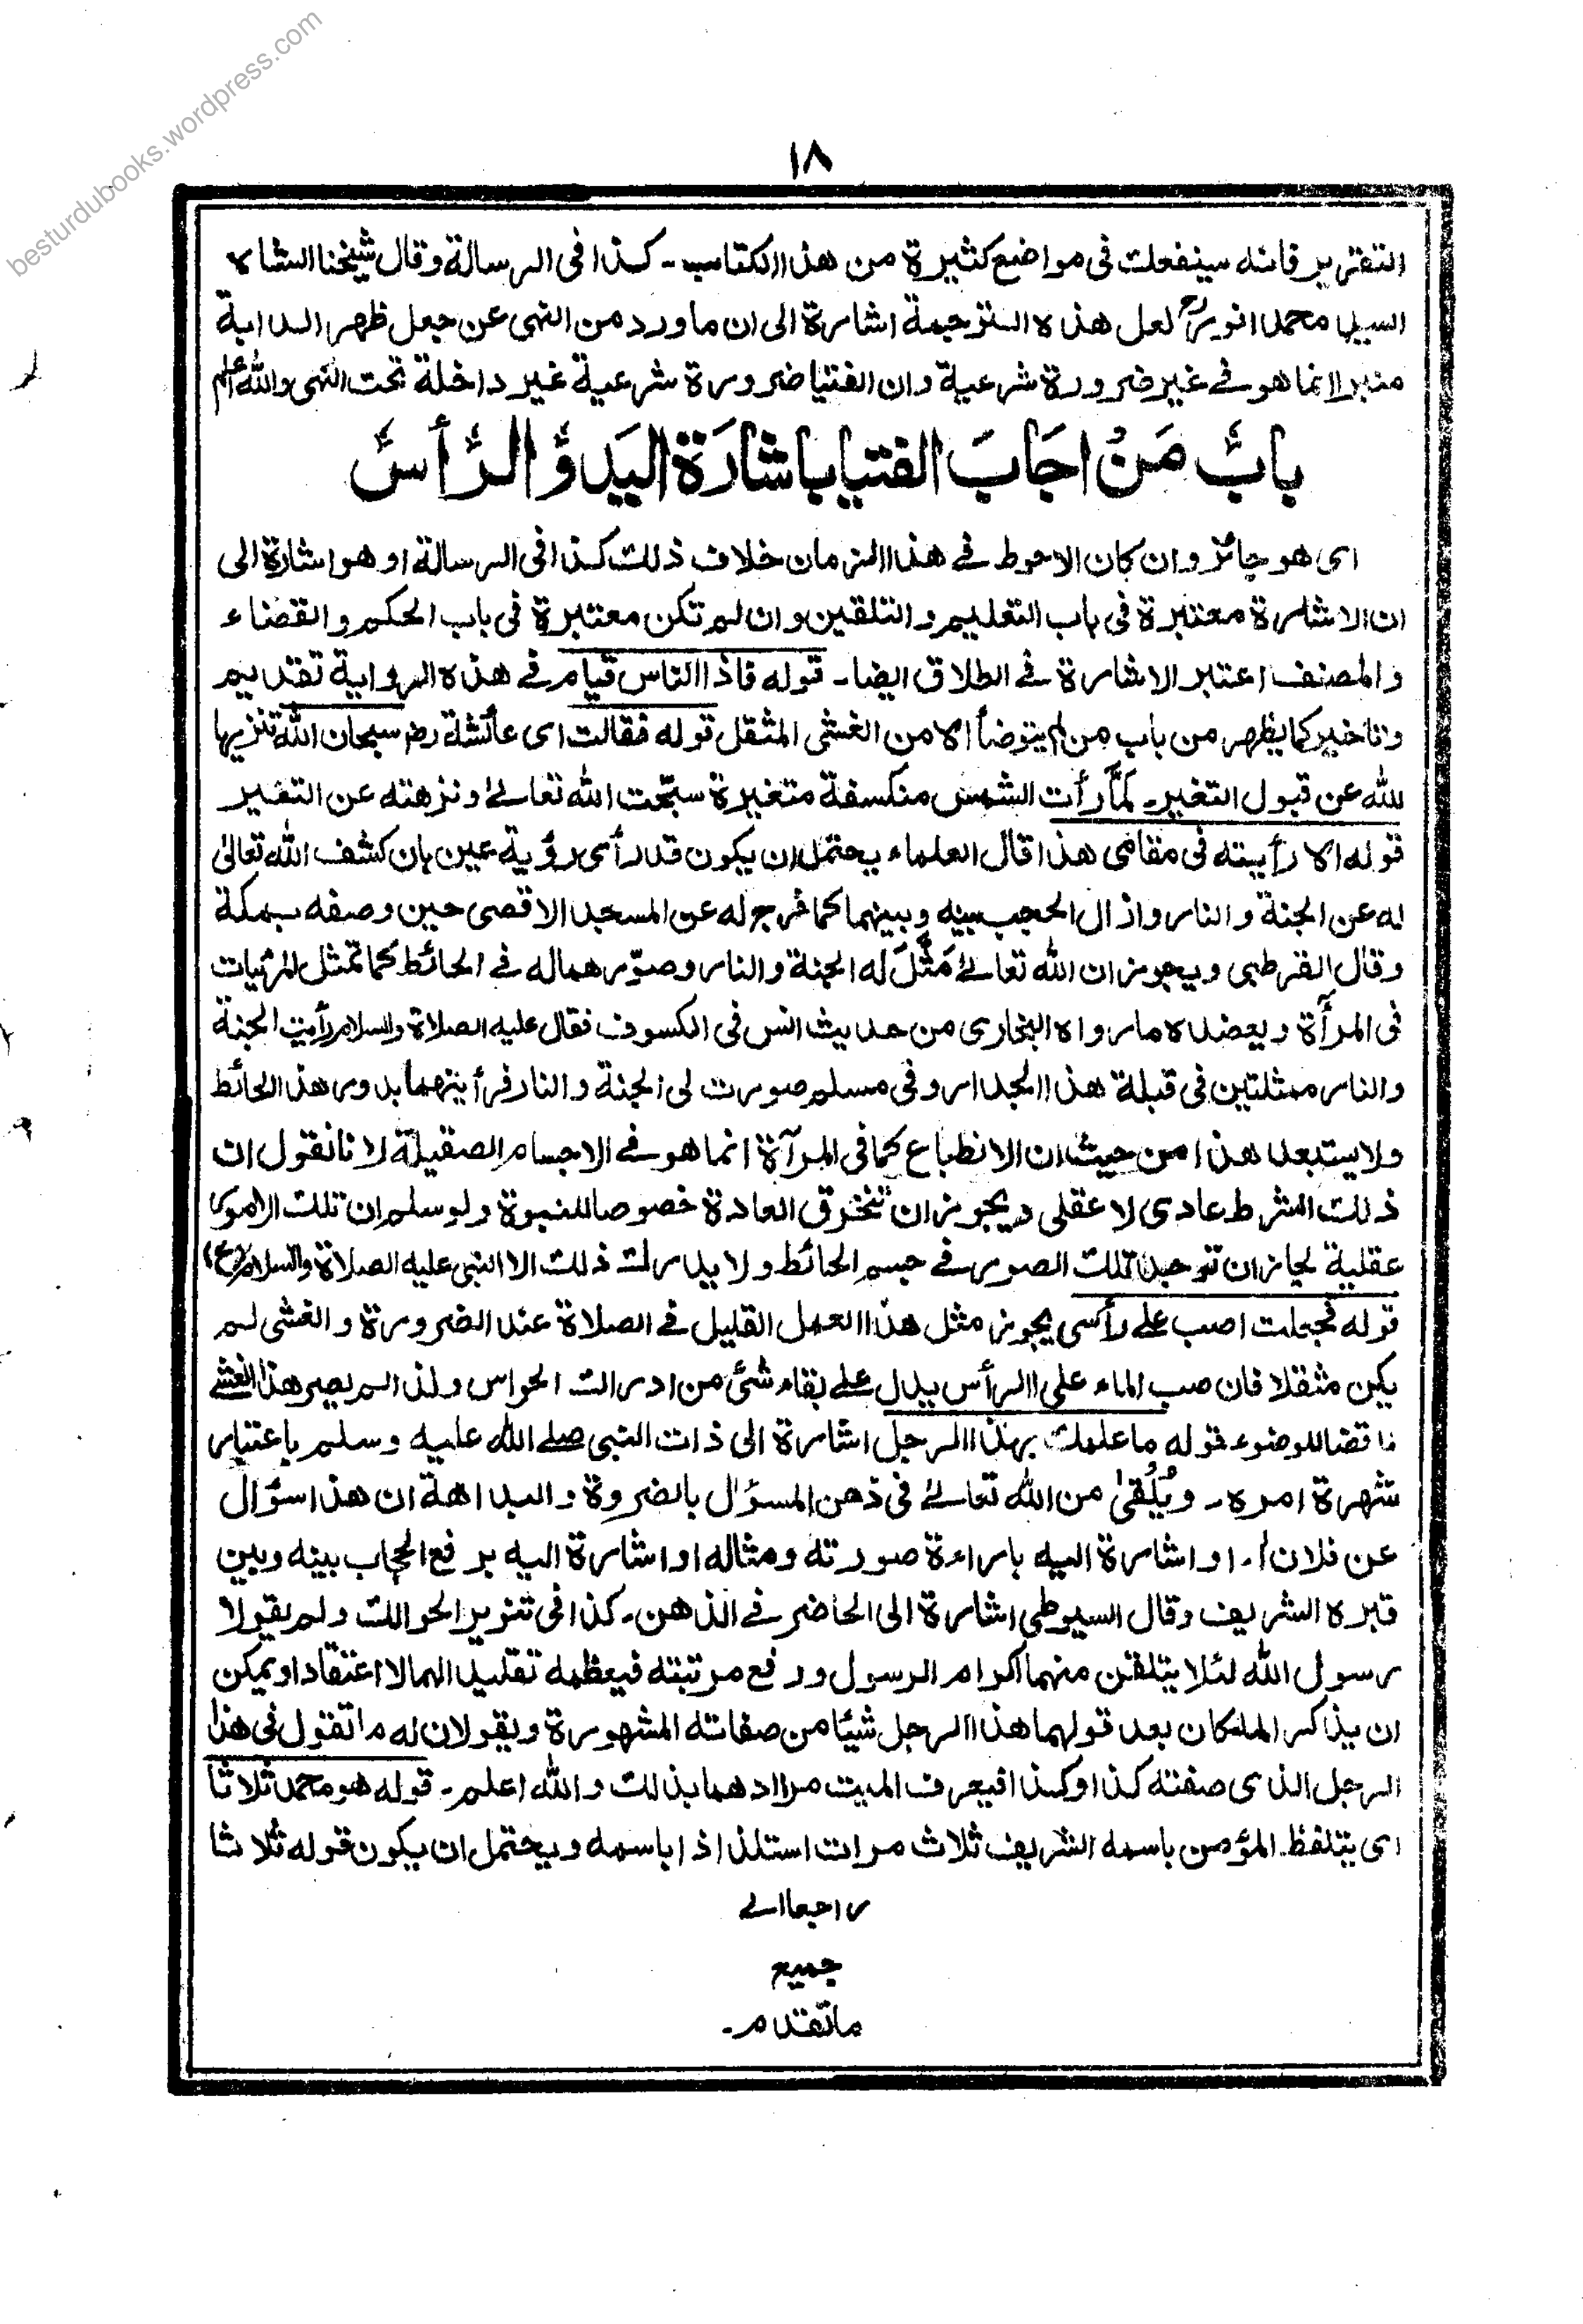 besturdubooks.wordpress.com
١٨
التقرير فانه سينفعك فى مواضع كثيرة من هذا الكتاب ـ كذا فى الرسالة وقال شيخنا الشاه
السيد محمد انور رح لعل هذه الترجمة اشارة الى ان ما ورد من النهى عن جعل ظهر الدابة
منبرا انما هو فے غير ضرورة شرعية وان الفتيا ضرورة شرعية غير داخلة تحت النهى والله اعلم
بابُ مَنْ اجَابَ الفتيا باشارَة اليَد وَالرَّأسِ
اى هو جائز وان كان الاحوط فے هذا الزمان خلاف ذلك كذا فى الرسالة او هو اشارة الى
ان الاشارة معتبرة فى باب التعليم والتلقين وان لم تكن معتبرة فى باب الحكم والقضاء
والمصنف اعتبر الاشارة فے الطلاق ايضا ـ قوله فاذا الناس قيام فے هذه الرواية تقديم
وتاخير كما يظهر من باب من لم يتوضأ الا من الغشى المثقل قوله فقالت اى عائشة رض سبحان الله تنزيها
لله عن قبول التغير ـ لمّا رأت الشمس منكسفة متغيرة سبّحت الله تعالےٰ ونزهته عن التغير
قوله الا رأيته فى مقامى هذا قال العلماء يحتمل ان يكون قد رأى رؤية عين بان كشف الله تعالىٰ
له عن الجنة والنار وازال الحجب بينه وبينهما كما فرج له عن المسجد الاقصى حين وصفه بمكة
وقال القرطبى ويجوز ان الله تعالےٰ مَثَّلَ له الجنة والنار وصوّرهما له فے الحائط كما تمثل المرئيات
فى المرأة ويعضده ما رواه البخارى من حديث انس فى الكسوف فقال عليه الصلاة والسلام رأيت الجنة
والنار ممثلتين فى قبلة هذا الجدار وفى مسلم صورت لى الجنة والنار فرأيتهما بدور هذا الحائط
ولا يستبعد هذا من حيث ان الانطباع كما فى المرآة انما هو فے الاجسام الصقيلة لانا نقول ان
ذلك الشرط عادى لا عقلى ويجوز ان تنخرق العادة خصوصا للنبوة ولو سلم ان تلك الامور
عقلية لجاز ان توجد تلك الصور فے جسم الحائط ولا يدرك ذلك الا النبى عليه الصلاة والسلام
قوله فجعلت اصب علے رأسى يجوز مثل هذا العمل القليل فے الصلاة عند الضرورة والغشى لم
يكن مثقلا فان صب الماء على الرأس يدل علے بقاء شئ من ادراك الحواس ولذا لم يصر هذا الغشے
ناقضا للوضوء قوله ما علمك بهذا الرجل اشارة الى ذات النبى صلے الله عليه وسلم باعتبار
شهرة امره ـ ويُلْقىٰ من الله تعالےٰ فى ذهن المسؤل بالضروة والبداهة ان هذا سؤال
عن فلان ا ـ او اشارة اليه باراءة صورته ومثاله او اشارة اليه برفع الحجاب بينه وبين
قبره الشريف وقال السيوطى اشارة الى الحاضر فے الذهن ـ كذا فى تنوير الحوالك ولم يقولا
رسول الله لئلا يتلقن منهما اكرام الرسول ورفع مرتبته فيعظمه تقليدا لهما لا اعتقادا ويمكن
ان يذاكر الملكان بعد قولهما هذا الرجل شيئا من صفاته المشهورة ويقولان له ما تقول فى هذا
الرجل الذى صفته كذا وكذا فيعرف الميت مرادهما بذلك والله اعلم ـ قوله هو محمد ثلاثا
اى يتلفظ المؤمن باسمه الشريف ثلاث مرات استلذاذا باسمه ويحتمل ان يكون قوله ثلاثا
راجعا الے
جميع
ما تقدم ـ